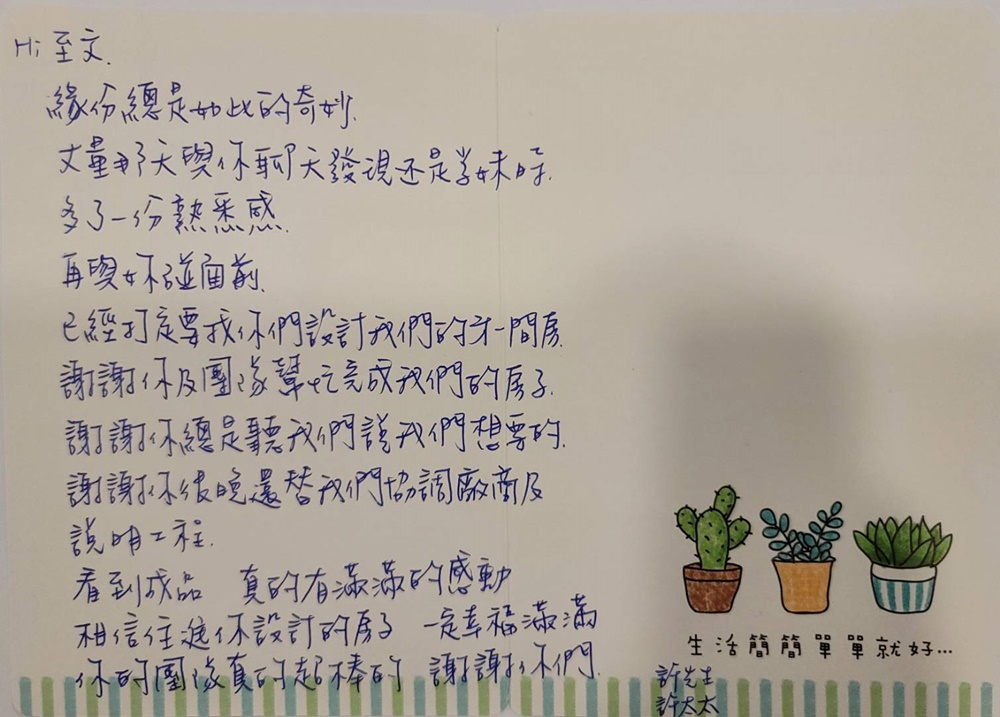 Hi 至文.
緣份總是如此的奇妙.
丈量那天與你聊天發現还是学妹時.
多了一份熟悉感.
再與妳碰面前.
已經打定要找你們設計我們的第一間房.
謝謝你及團隊幫忙完成我們的房子.
謝謝你總是聽我們說我們想要的.
謝謝你很晚還替我們協調廠商及
說明工程.
看到成品 真的有滿滿的感動
相信住進你設計的房子 一定幸福滿滿
你的團隊真的超棒的 謝謝你們.
生活簡簡單單就好...
許先生
許太太